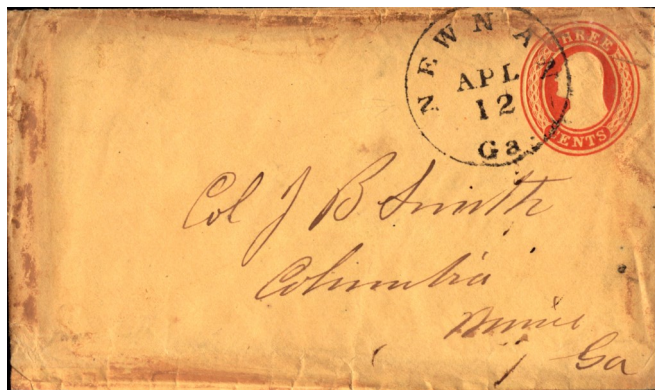 NEWNAN
APL
12
Ga.
THREE
CENTS
Col J B Smith
Columbia
Mine
Ga